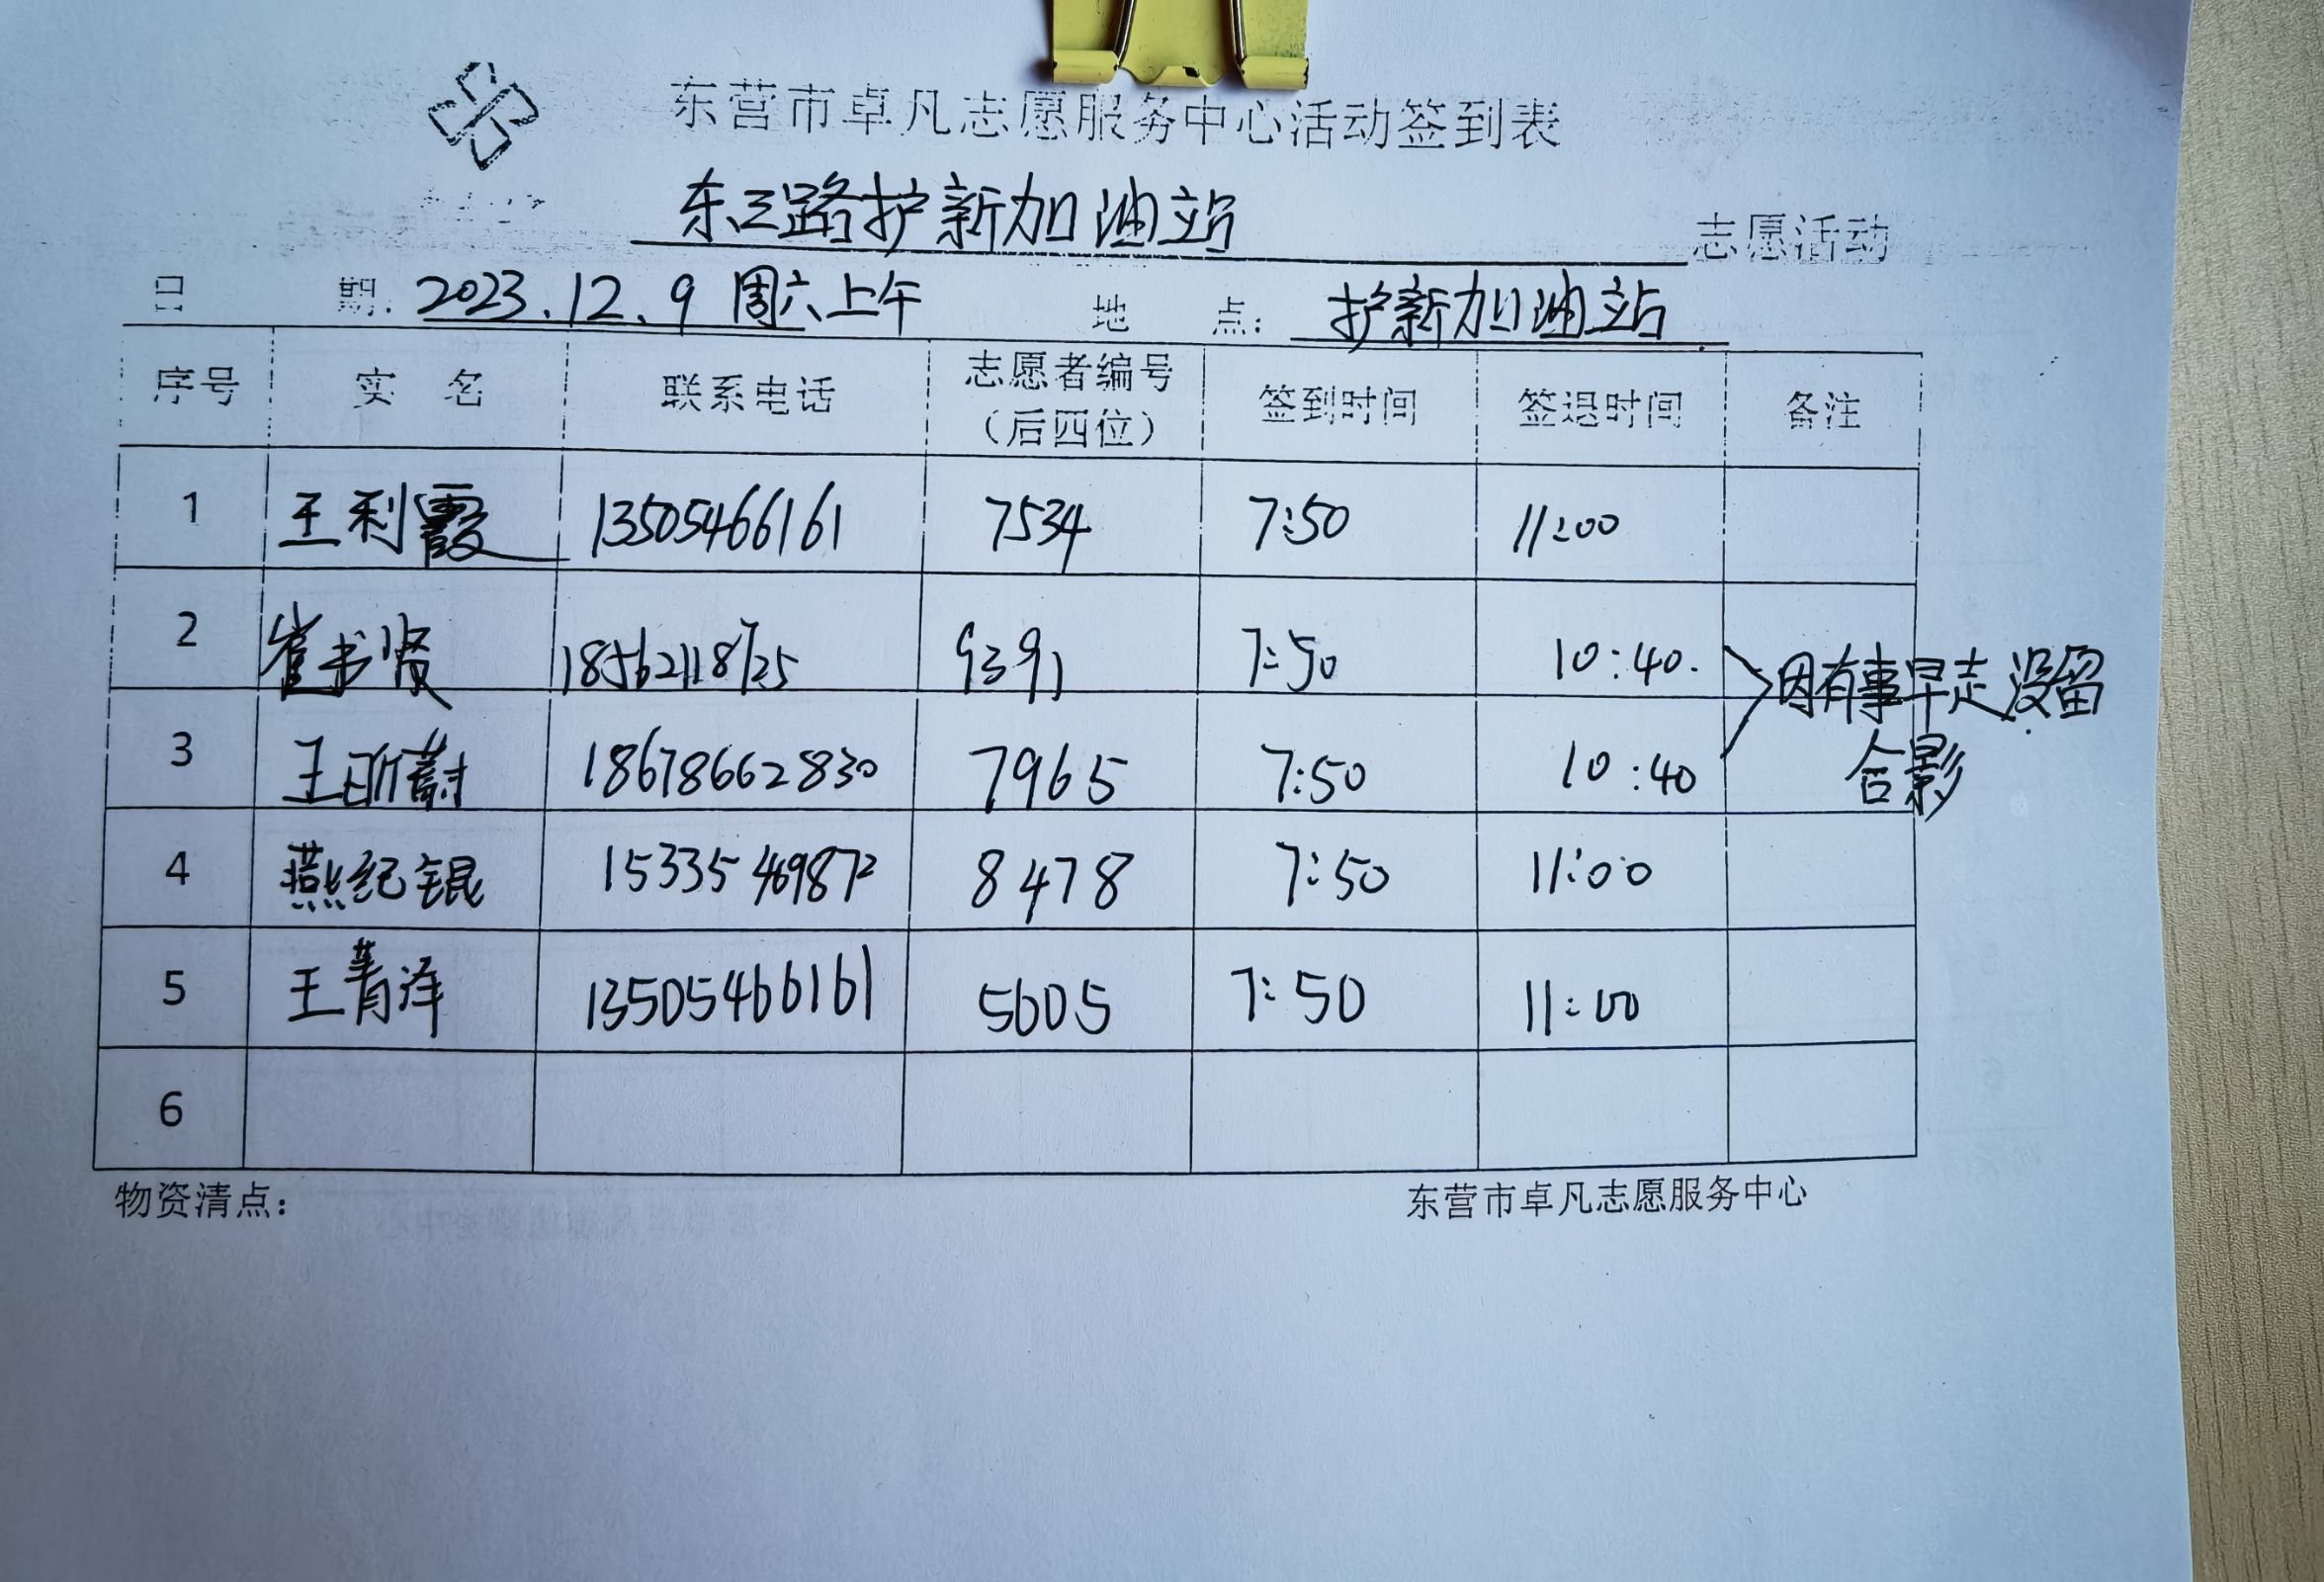 东营市卓凡志愿服务中心活动签到表
东三路护新加油站 志愿活动
日 期: 2023.12.9 周六上午 地 点: 护新加油站
序号 实 名 联系电话 志愿者编号（后四位） 签到时间 签退时间 备注
1 王利霞 13505466161 7534 7:50 11:00
2 崔书贤 18562118725 9391 7:50 10:40. 因有事早走没留
3 王昕蔚 18678662830 7965 7:50 10:40 合影
4 燕纪锟 15335469872 8478 7:50 11:00
5 王菁泽 13505466161 5605 7:50 11:00
6
物资清点: 东营市卓凡志愿服务中心